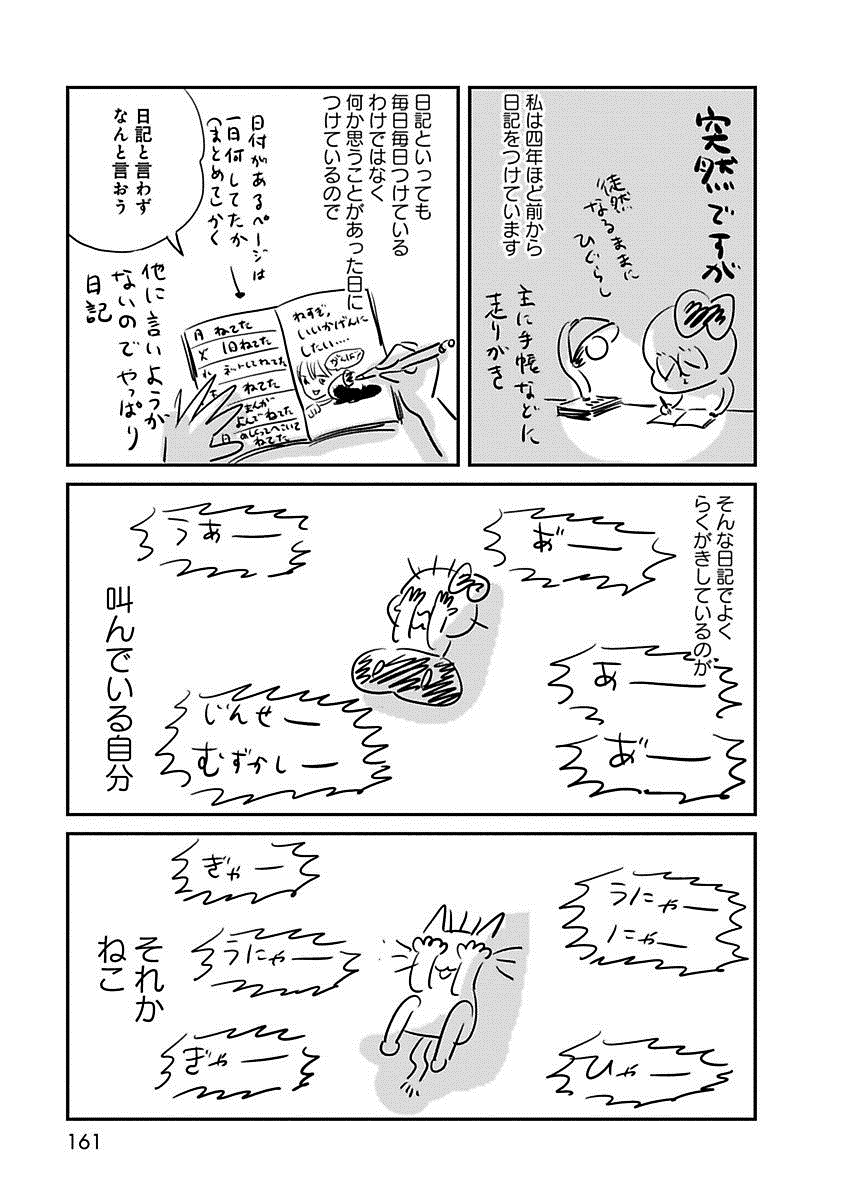 突然ですが
私は四年ほど前から
日記をつけています
徒然
なるままに
ひぐらし
主に手帳などに
走りがき
日記といっても
毎日毎日つけている
わけではなく
何か思うことがあった日に
つけているので
日付があるページは
一日何してたか
(まとめて)かく
日記と言わず
なんと言おう
他に言いようが
ないのでやっぱり
日記
月 ねてた
火 1日ねてた
ネットしてねてた
ねてた
まんが
よんでねてた
日
ねてた
ねすぎ。
いいかげんに
したい....
がんば!
そんな日記でよく
らくがきしているのが
あ゛ー
うあー
あー
あ゛ー
じんせー
むずかしー
叫んでいる自分
うにゃー
にゃー
ぎゃー
うにゃー
ひゃー
ぎゃー
それか
ねこ
161